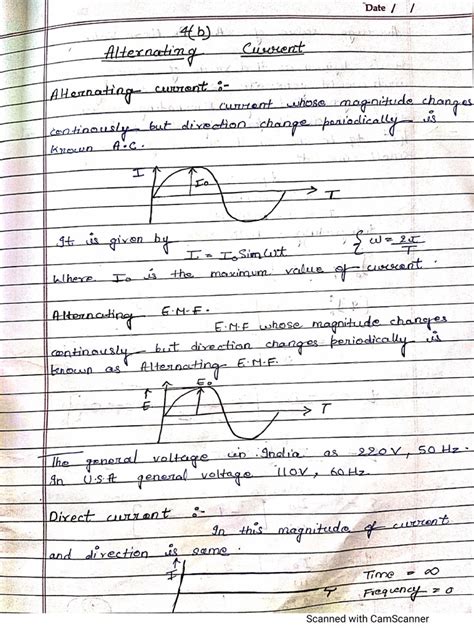 Date / /
4(b)
Alternating Current
Alternating current :-
current whose magnitude changes
continously but direction change periodically is
known A.C.
I
I₀
T
It is given by
I = I₀ Sinωt { ω = 2π/T
Where I₀ is the maximum value of current.
Alternating E.M.F.
E.M.F whose magnitude changes
continously but direction changes periodically is
known as Alternating E.M.F.
E₀
E
T
The general voltage in India as 220V, 50 Hz.
In U.S.A general voltage 110V, 60Hz.
Direct current :-
In this magnitude of current
and direction is same.
I
T
Time = ∞
Frequency = 0
Scanned with CamScanner